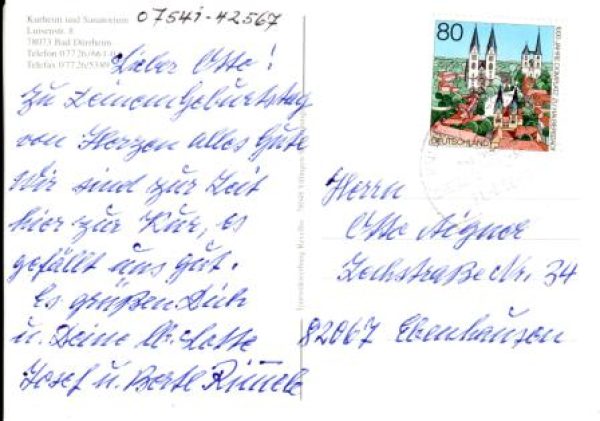 Kurheim und Sanatorium
Luisenstr. 8
78073 Bad Dürrheim
Telefon 07726/661-0
Telefax 07726/5389
07541-42567
Lieber Otto!
Zu Deinem Geburtstag
von Herzen alles Gute
Wir sind zur Zeit
hier zur Kur, es
gefällt uns gut.
Es grüßen Dich
u. Deine lb. Lotte
Josef u. Bertl
80
DEUTSCHLAND
Herrn
Otto Aigner
Zechstraße Nr. 34
82067 Ebenhausen